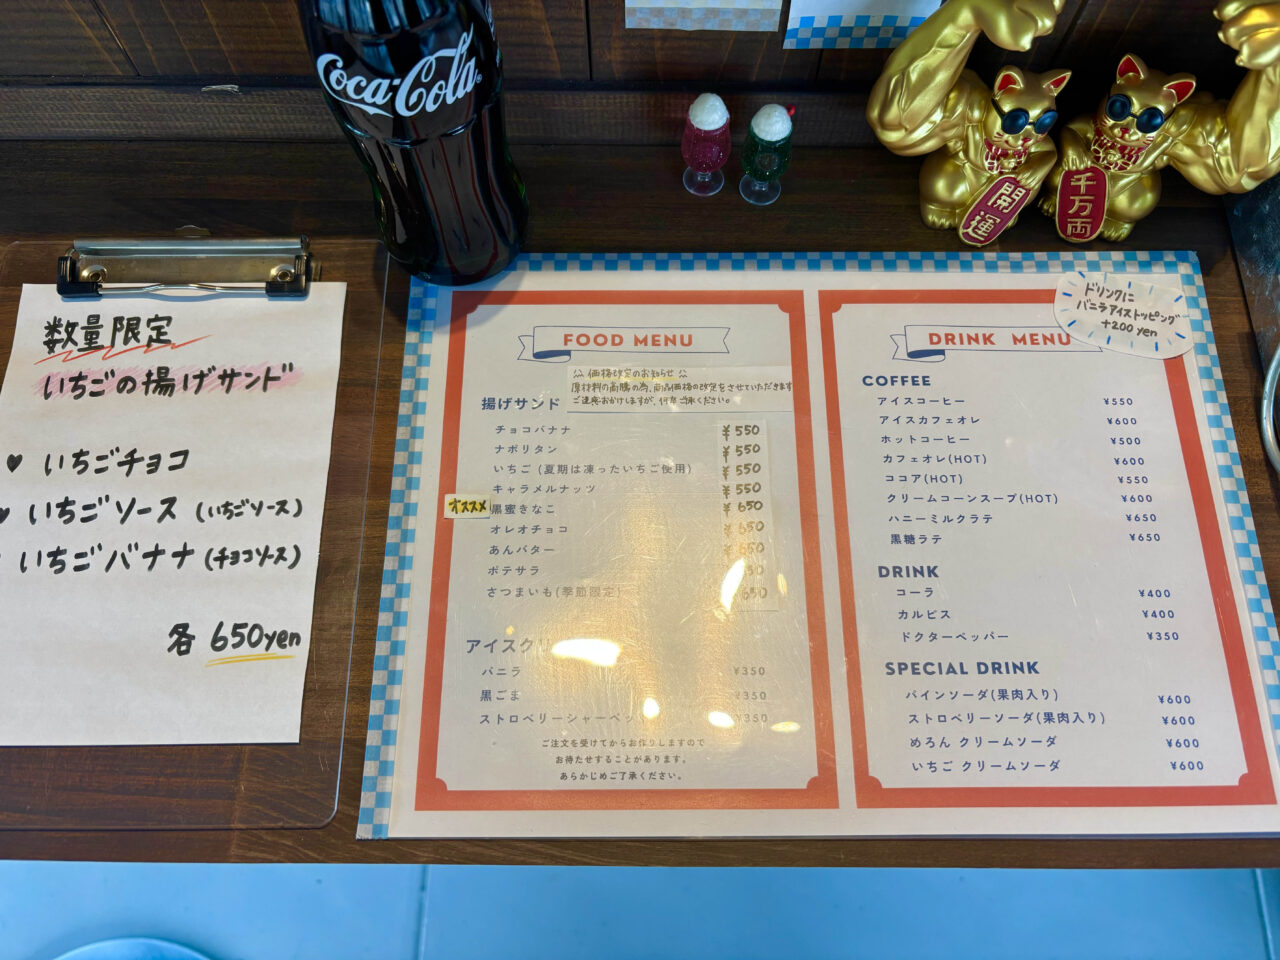 Coca-Cola
開運
千万両
数量限定
いちごの揚げサンド
♥ いちごチョコ
いちごソース (いちごソース)
いちごバナナ (チョコソース)
各 650yen
FOOD MENU
価格改定のお知らせ
原材料の高騰の為、商品価格の改定をさせていただきます
ご迷惑おかけしますが、何卒ご了承ください。
揚げサンド
チョコバナナ ¥550
ナポリタン ¥550
いちご (夏期は凍ったいちご使用) ¥550
キャラメルナッツ ¥550
オススメ 黒蜜きなこ ¥650
オレオチョコ ¥650
あんバター ¥650
ポテサラ
さつまいも(季節限定) 650
アイスクリ
バニラ ¥350
黒ごま ¥350
ストロベリーシャーベッ ¥350
ご注文を受けてからお作りしますので
お待たせすることがあります。
あらかじめご了承ください。
DRINK MENU
ドリンクに
バニラアイストッピング
+200yen
COFFEE
アイスコーヒー ¥550
アイスカフェオレ ¥600
ホットコーヒー ¥500
カフェオレ(HOT) ¥600
ココア(HOT) ¥550
クリームコーンスープ(HOT) ¥600
ハニーミルクラテ ¥650
黒糖ラテ ¥650
DRINK
コーラ ¥400
カルピス ¥400
ドクターペッパー ¥350
SPECIAL DRINK
パインソーダ(果肉入り) ¥600
ストロベリーソーダ(果肉入り) ¥600
めろん クリームソーダ ¥600
いちご クリームソーダ ¥600